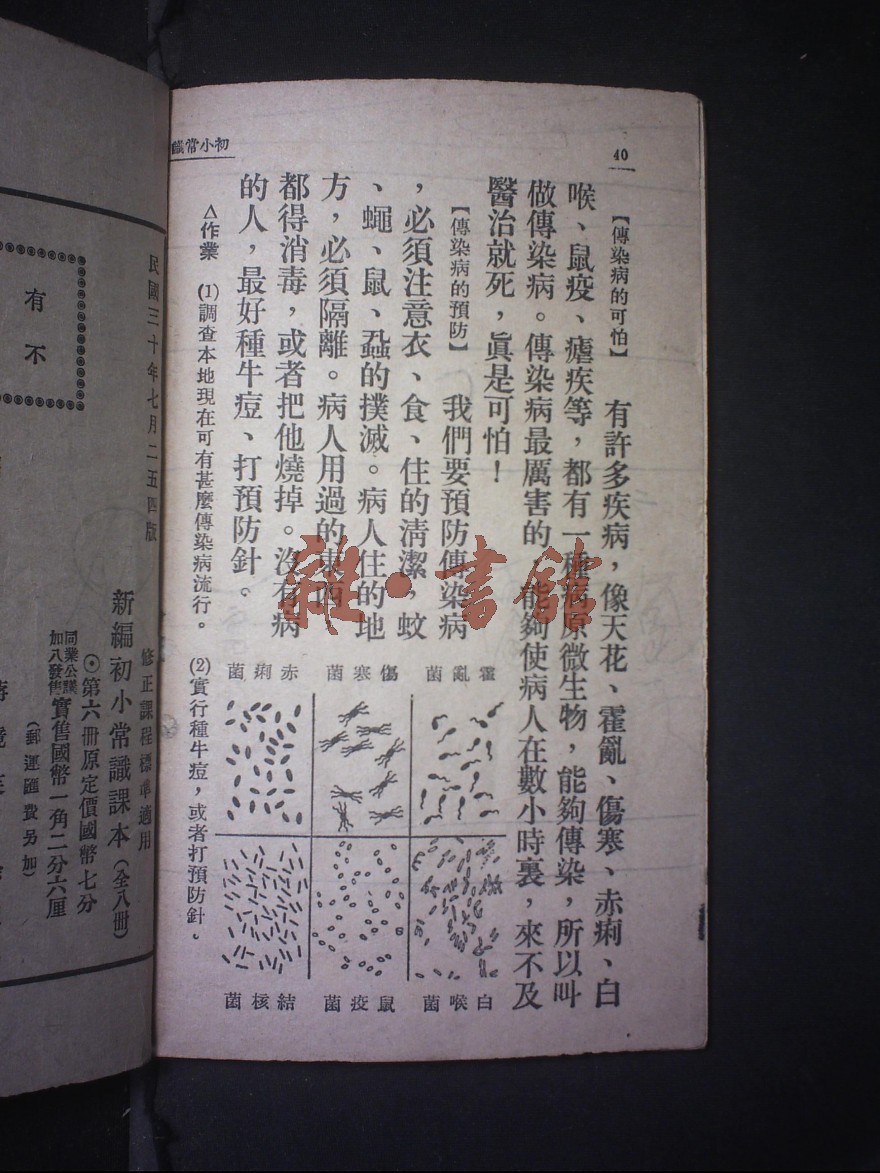 初小常識
40
【傳染病的可怕】 有許多疾病，像天花、霍亂、傷寒、赤痢、白
喉、鼠疫、瘧疾等，都有一種病原微生物，能夠傳染，所以叫
做傳染病。傳染病最厲害的，能夠使病人在數小時裏，來不及
醫治就死，眞是可怕！
【傳染病的預防】 我們要預防傳染病
，必須注意衣、食、住的清潔，蚊
、蠅、鼠、蝨的撲滅。病人住的地
方，必須隔離。病人用過的東西
都得消毒，或者把他燒掉。沒有病
的人，最好種牛痘、打預防針。
△作業 (1)調查本地現在可有甚麼傳染病流行。 (2)實行種牛痘，或者打預防針。
霍亂菌
傷寒菌
赤痢菌
白喉菌
鼠疫菌
結核菌
雜·書館
修正課程標準適用
新編初小常識課本（全八冊）
⊙第六冊原定價國幣七分
同業公議
加八發售
實售國幣一角二分六厘
（郵運匯費另加）
民國三十年七月二五四版
有
不